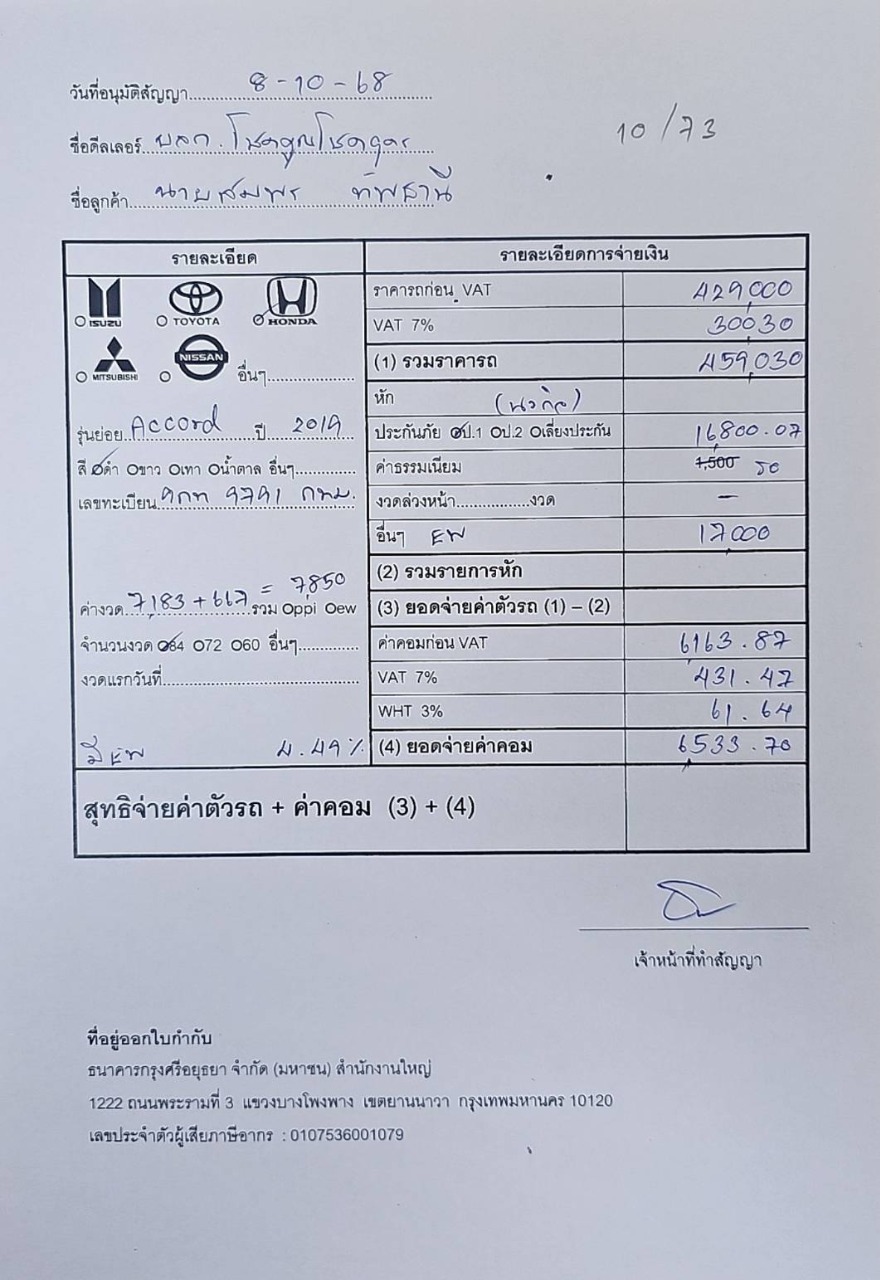 วันที่อนุมัติสัญญา 8-10-68
10/73
ชื่อดีลเลอร์ บลก. โชคคูณโชคถาวร
ชื่อลูกค้า นายสมพร ทัพธานี
รายละเอียด
รายละเอียดการจ่ายเงิน
ISUZU TOYOTA HONDA
MITSUBISHI NISSAN อื่นๆ
รุ่นย่อย Accord ปี 2019
สี Oดำ Oขาว Oเทา Oน้ำตาล อื่นๆ
เลขทะเบียน 9กท 9791 กทม.
ค่างวด 7,183 + 667 = 7,850 รวม Oppi Oew
จำนวนงวด O84 O72 O60 อื่นๆ
งวดแรกวันที่
มี EW 4.49%
ราคารถก่อน VAT 429,000
VAT 7% 30,030
(1) รวมราคารถ 459,030
หัก (นวกิจ)
ประกันภัย Oป.1 Oป.2 Oเลี่ยงประกัน 16,800.07
ค่าธรรมเนียม 1,500 50
งวดล่วงหน้า งวด –
อื่นๆ EW 17,000
(2) รวมรายการหัก
(3) ยอดจ่ายค่าตัวรถ (1) – (2)
ค่าคอมก่อน VAT 6,163.87
VAT 7% 431.47
WHT 3% 61.64
(4) ยอดจ่ายค่าคอม 6,533.70
สุทธิจ่ายค่าตัวรถ + ค่าคอม (3) + (4)
เจ้าหน้าที่ทำสัญญา
ที่อยู่ออกใบกำกับ
ธนาคารกรุงศรีอยุธยา จำกัด (มหาชน) สำนักงานใหญ่
1222 ถนนพระรามที่ 3 แขวงบางโพงพาง เขตยานนาวา กรุงเทพมหานคร 10120
เลขประจำตัวผู้เสียภาษีอากร : 0107536001079